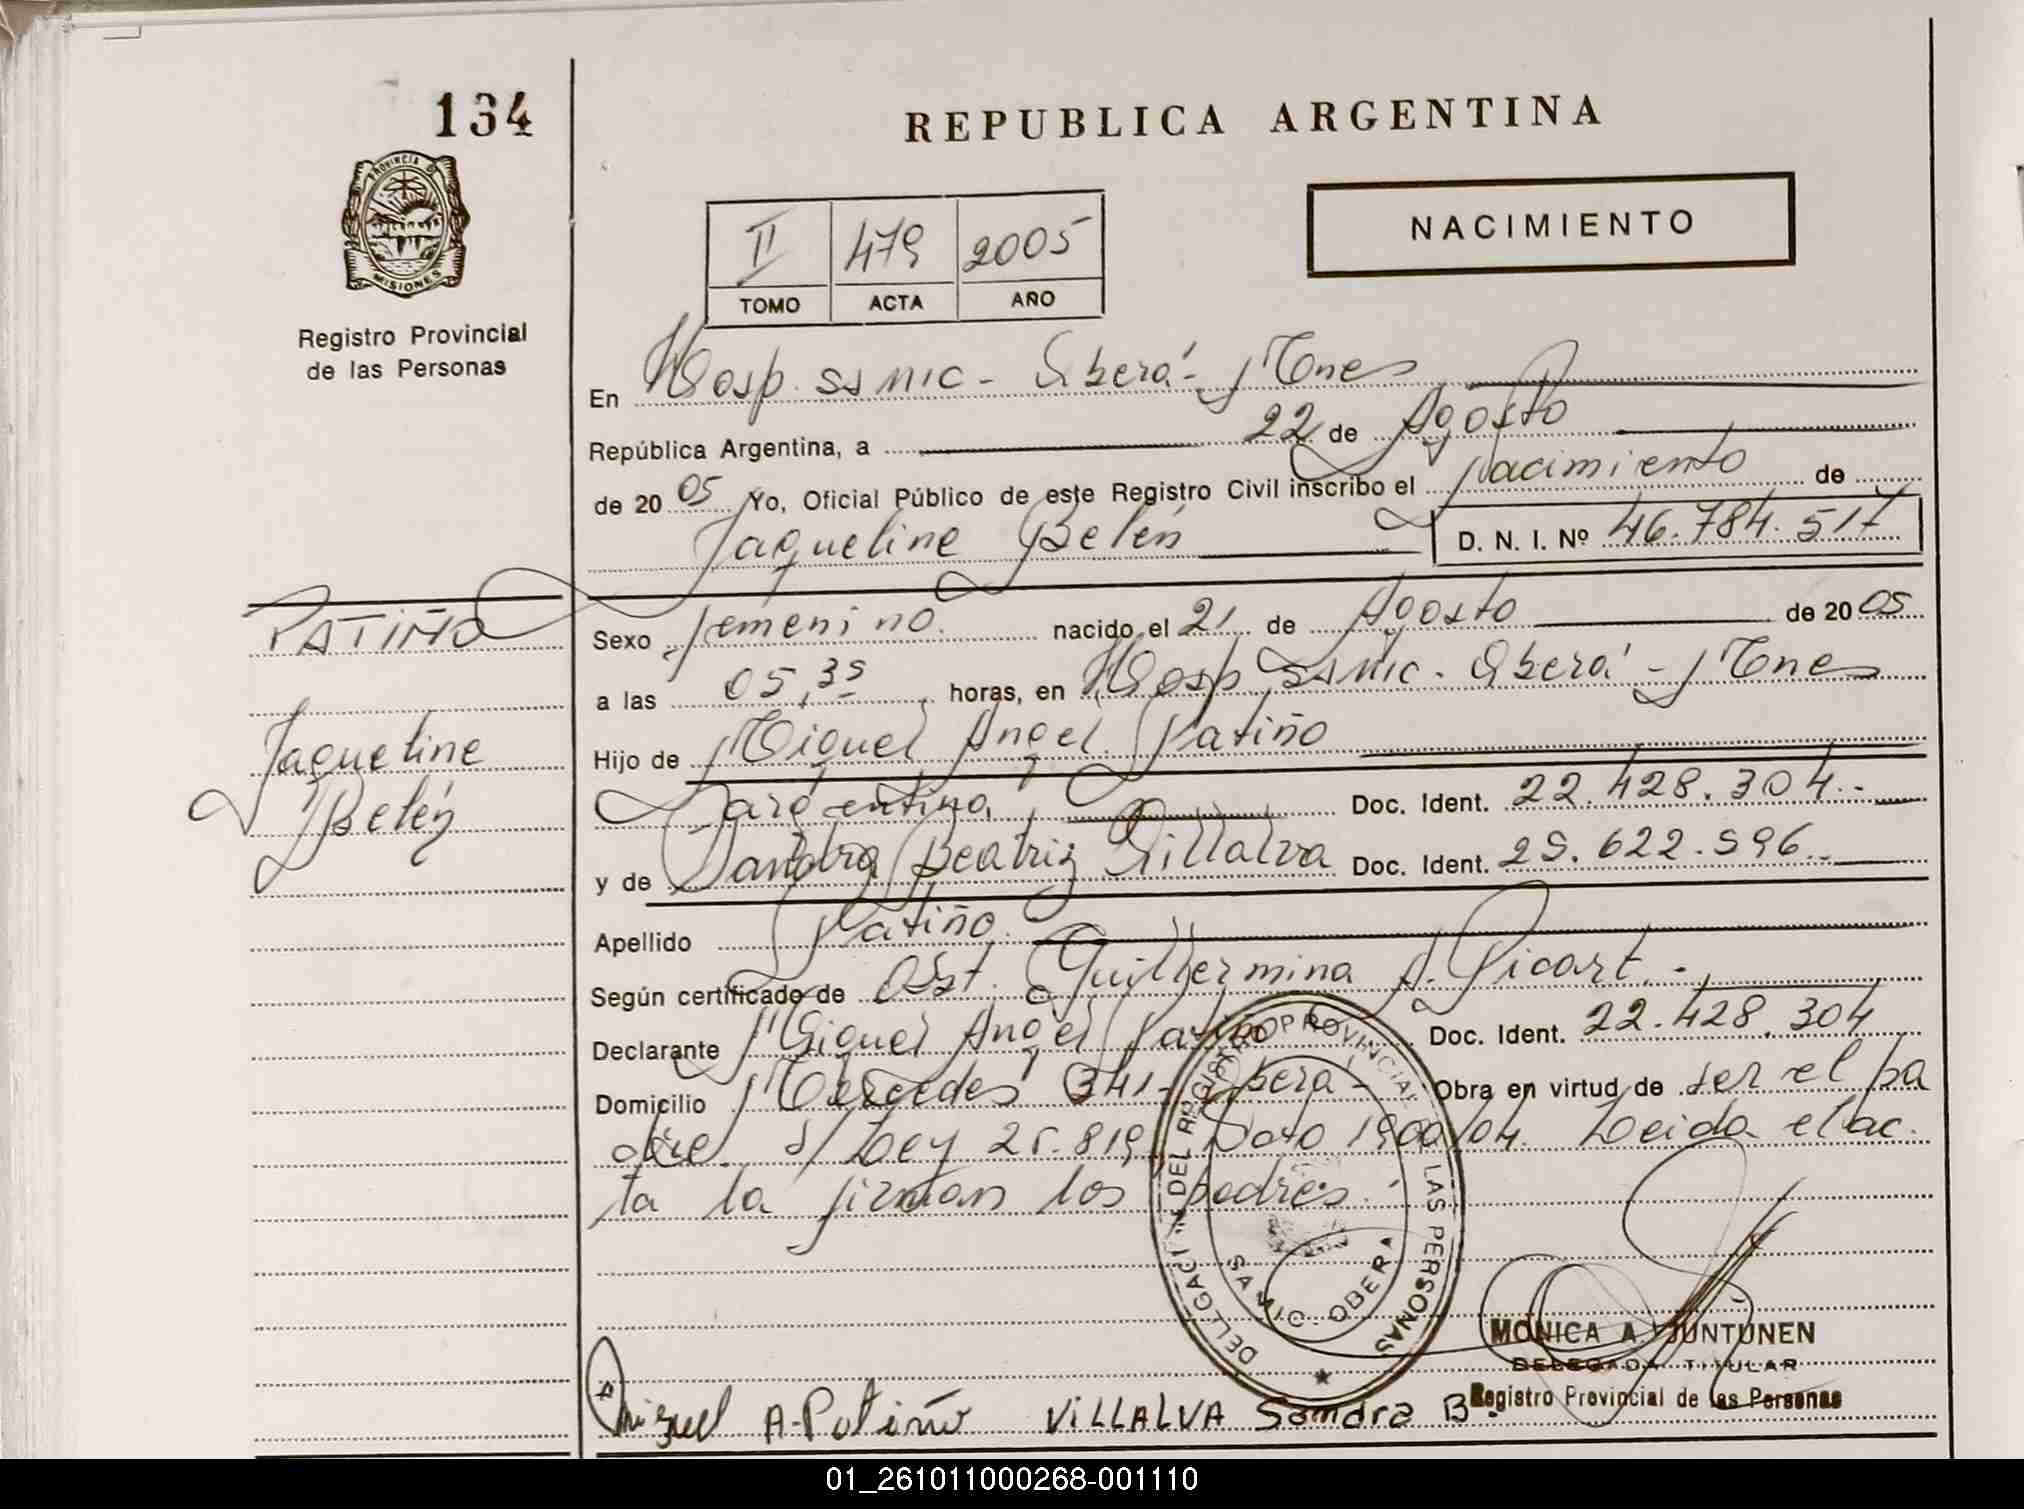 134
PROVINCIA DE
MISIONES
Registro Provincial
de las Personas
REPUBLICA ARGENTINA
NACIMIENTO
II 479 2005
TOMO ACTA AÑO
En Hosp. SAMIC - Oberá - Mnes
República Argentina, a 22 de Agosto
de 2005 Yo, Oficial Público de este Registro Civil inscribo el nacimiento de
Jaqueline Belén D. N. I. Nº 46.784.517
PATIÑO
Jaqueline
Belén
Sexo femenino nacido el 21 de Agosto de 2005
a las 05,35 horas, en Hosp. SAMIC - Oberá - Mnes
Hijo de Miguel Angel Patiño
argentino Doc. Ident. 22.428.304.-
y de Sandra Beatriz Villalva Doc. Ident. 25.622.596.-
Apellido Patiño
Según certificado de Obst. Guillermina A. Picart.-
Declarante Miguel Angel Patiño Doc. Ident. 22.428.304
Domicilio Mercedes 341 - Oberá - Obra en virtud de ser el pa
dre s/ Ley 25.819 Dcto 1900/04. Leida el ac
ta la firman los padres.
DELEGACION DEL REGISTRO PROVINCIAL LAS PERSONAS
SAMIC - OBERA
MONICA A. JUNTUNEN
DELEGADA TITULAR
Registro Provincial de las Personas
Miguel A. Patiño VILLALVA Sandra B.
01_261011000268-001110